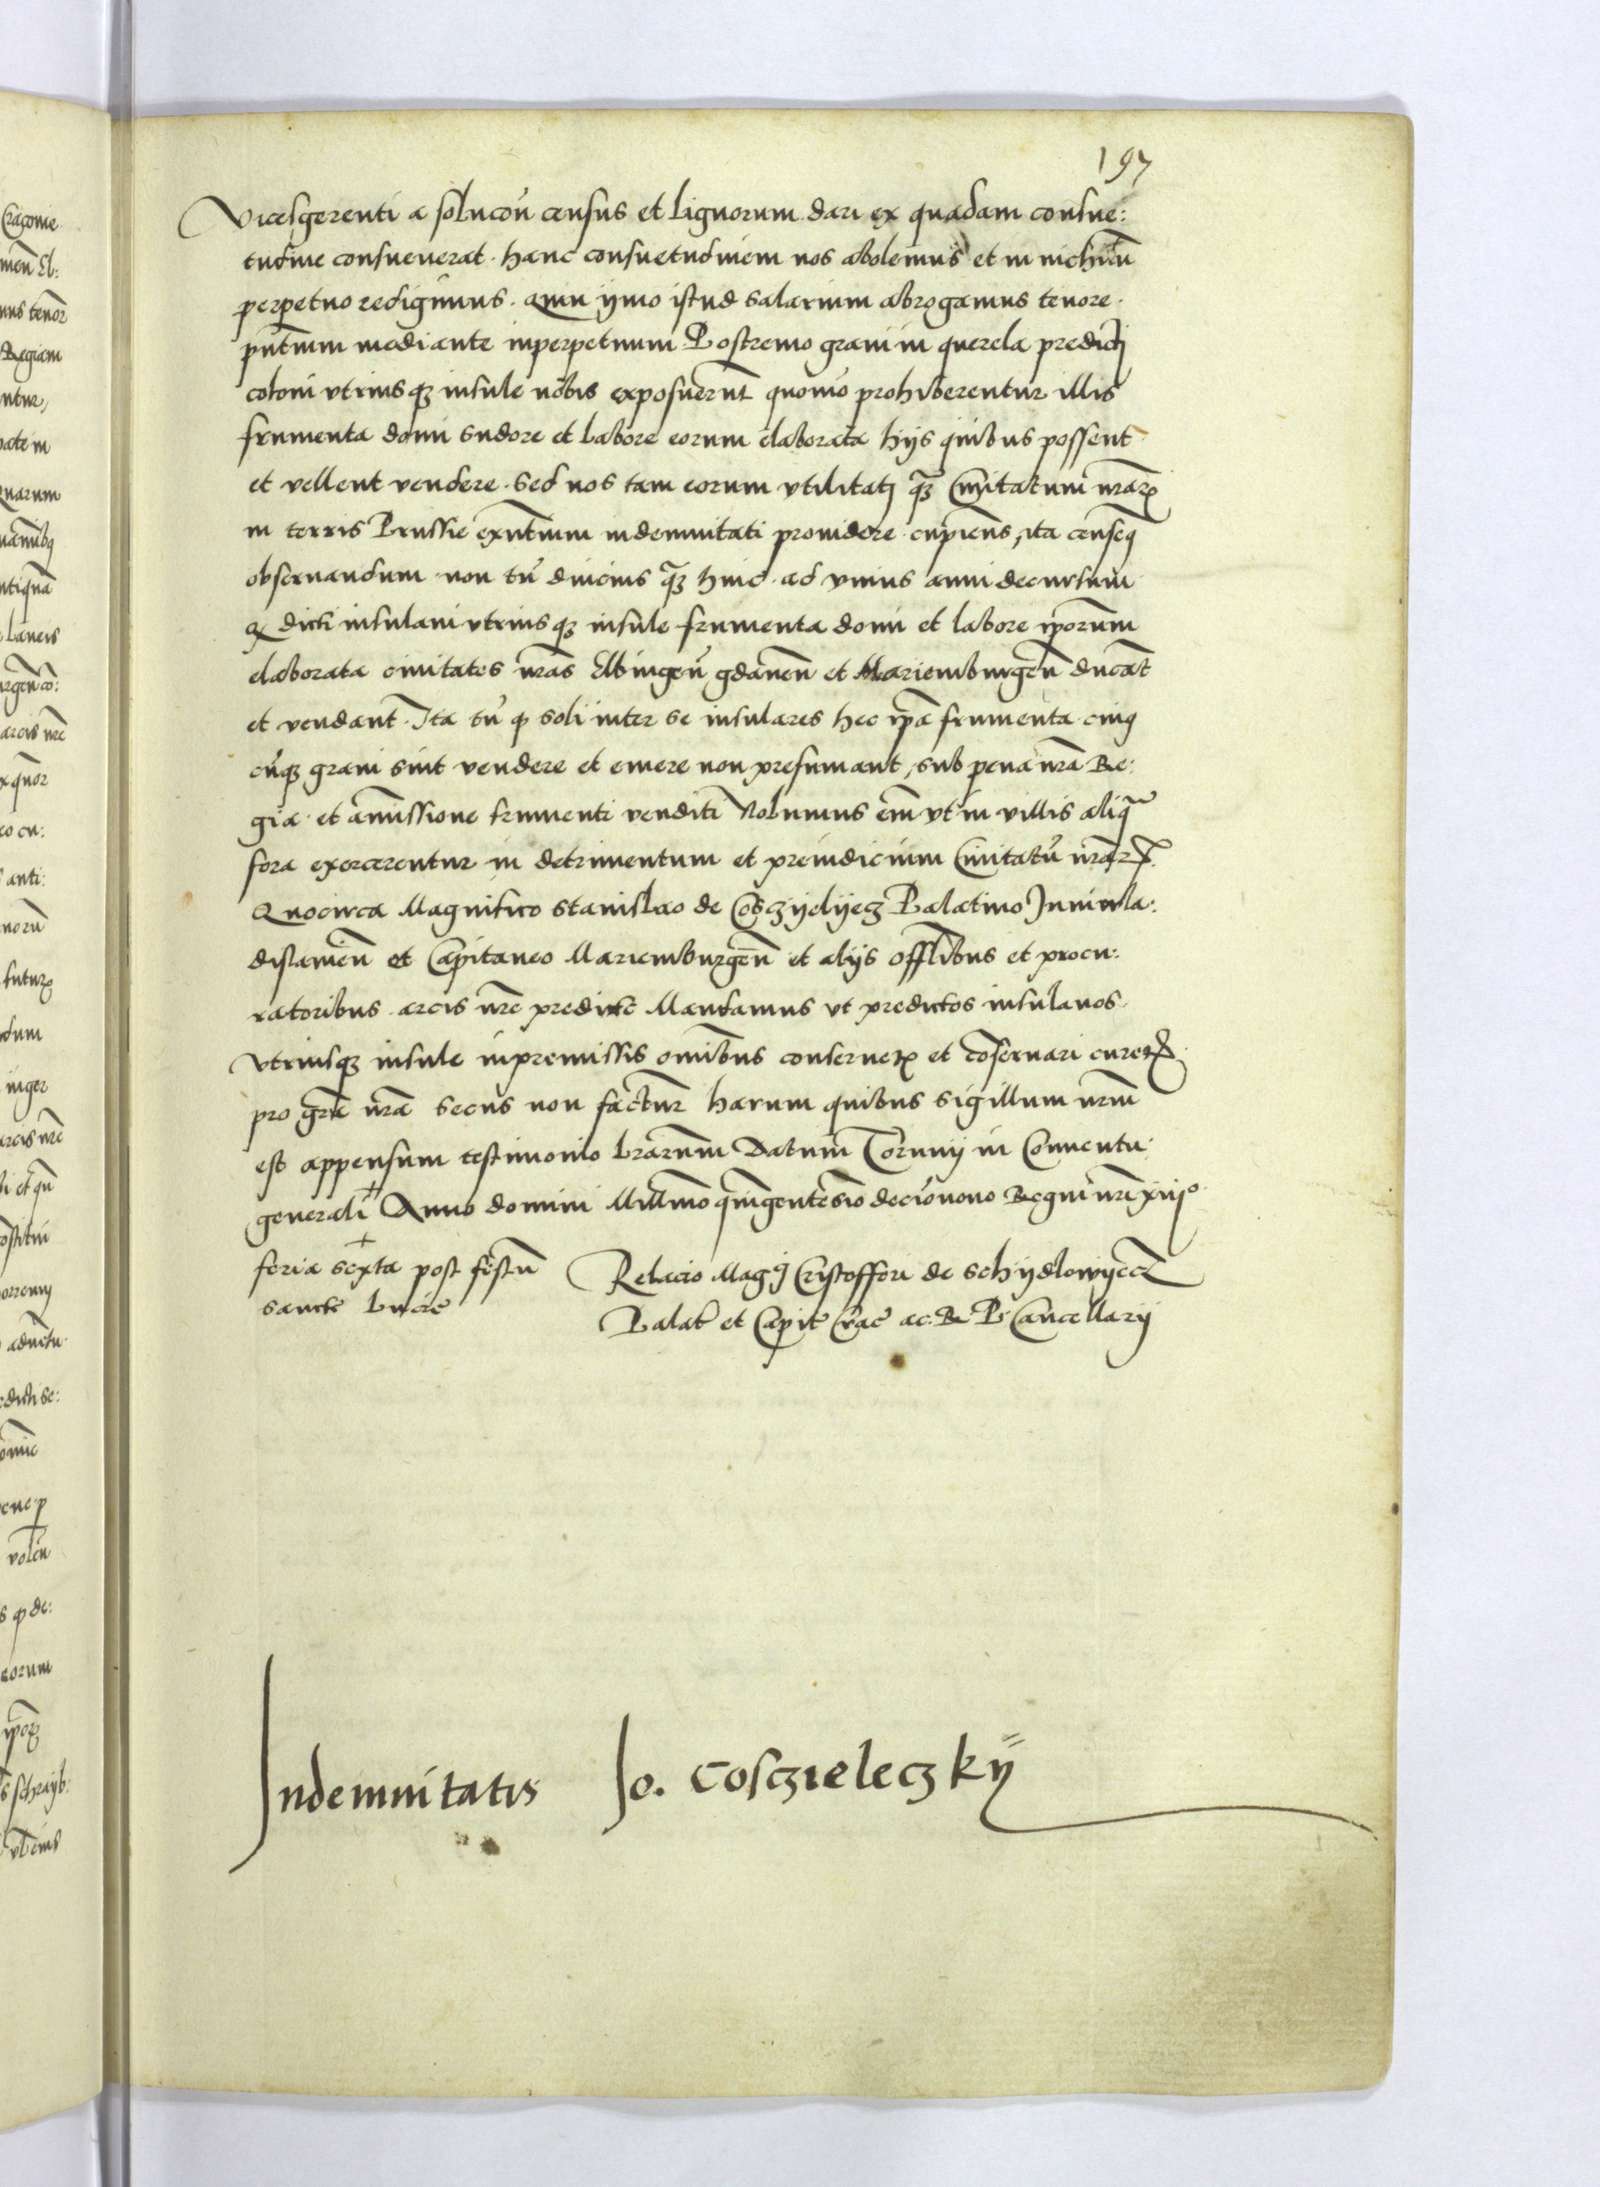 197
Vicesgerenti a solucoñ census et lignorum dari ex quadam consue:
tudine consueuerat. hanc consuetudinem nos abolemus et in nichilũ
perpetuo redigimus. quin ymo istud salarium abrogamus tenore
pñtium mediante inperpetuum Postremo graui in querela predicti
coloni vtriusqz insule nobis exposuerũt quomo prohiberentur illis
frumenta domi sudore et labore eorum elaborata hijs quibus possent
et vellent vendere. Sed nos tam eorum vtilitati qz Ciuitatum nrar
in terris Prussie exñtium indemnitati prouidere cupiens, ita censeq
obseruandum non tñ diucius qz hinc ad vnius anni decursum
q dicti insulani vtriusqz insule frumenta domi et labore ipsorum
elaborata ciuitates nras Elbingeñ gdaneñ et Mariemburgeñ ducãt
et vendant. Ita tñ q soli inter se insulares hec ipa frumenta cuiq
cũqz grani sint vendere et emere non presumant, sub pena nra Re:
gia et amissione frumenti venditi Nolumus em vt in villis aliq
fora exercerentur in detrimentum et preiudicium Ciuitatũ nrar.
Quocirca Magnifico Stanislao de Cosczyelyecz Palatino Juniula:
dislauieñ et Capitaneo Mariemburgeñ et alijs offlibus et procu:
ratoribus arcis nre predicte Mandamus vt predictos insulanos
vtriusqz insule inpremissis omibus conseruet et coseruari curet
pro gra nra secus non factur Harum quibus sigillum nrm
est appensum testimonio lrarum Datum Torunij in Conuentu
generali Anno domini Millmo quingentesio decionono Regni nri xiijo
feria sexta post festũ
sancte Lucie
Relacio Magci Cristoffori de Schijdlowyecz
Palat et Capit Crac ac R P Cancellarij
Indemnitatis Jo. Cosczieleczkÿ